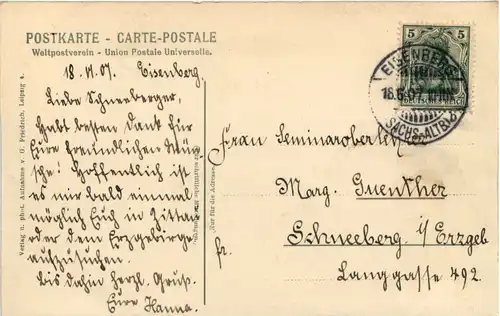 POSTKARTE - CARTE-POSTALE
Weltpostverein - Union Postale Universelle.
18.VI.07. Eisenberg.
Liebe Schneeberger,
Habt besten Dank für
Eure freundlichen Wün-
sche! Hoffentlich ist
es mir bald einmal
möglich Euch in Zittau
oder dem Erzgebirge
aufzusuchen.
Bis dahin herzl. Gruß.
Eure Hanna.
Verlag u. phot. Aufnahme v. G. Friedrich, Leipzig a.
Nur für die Adresse.
5 5
DEUTSCHES REICH
EISENBERG
18.6.07.
SACHS.-ALTB.
Frau Seminaroberlehr.
Marg. Guenther
fr. Schneeberg i/ Erzgeb
Langgasse 492.